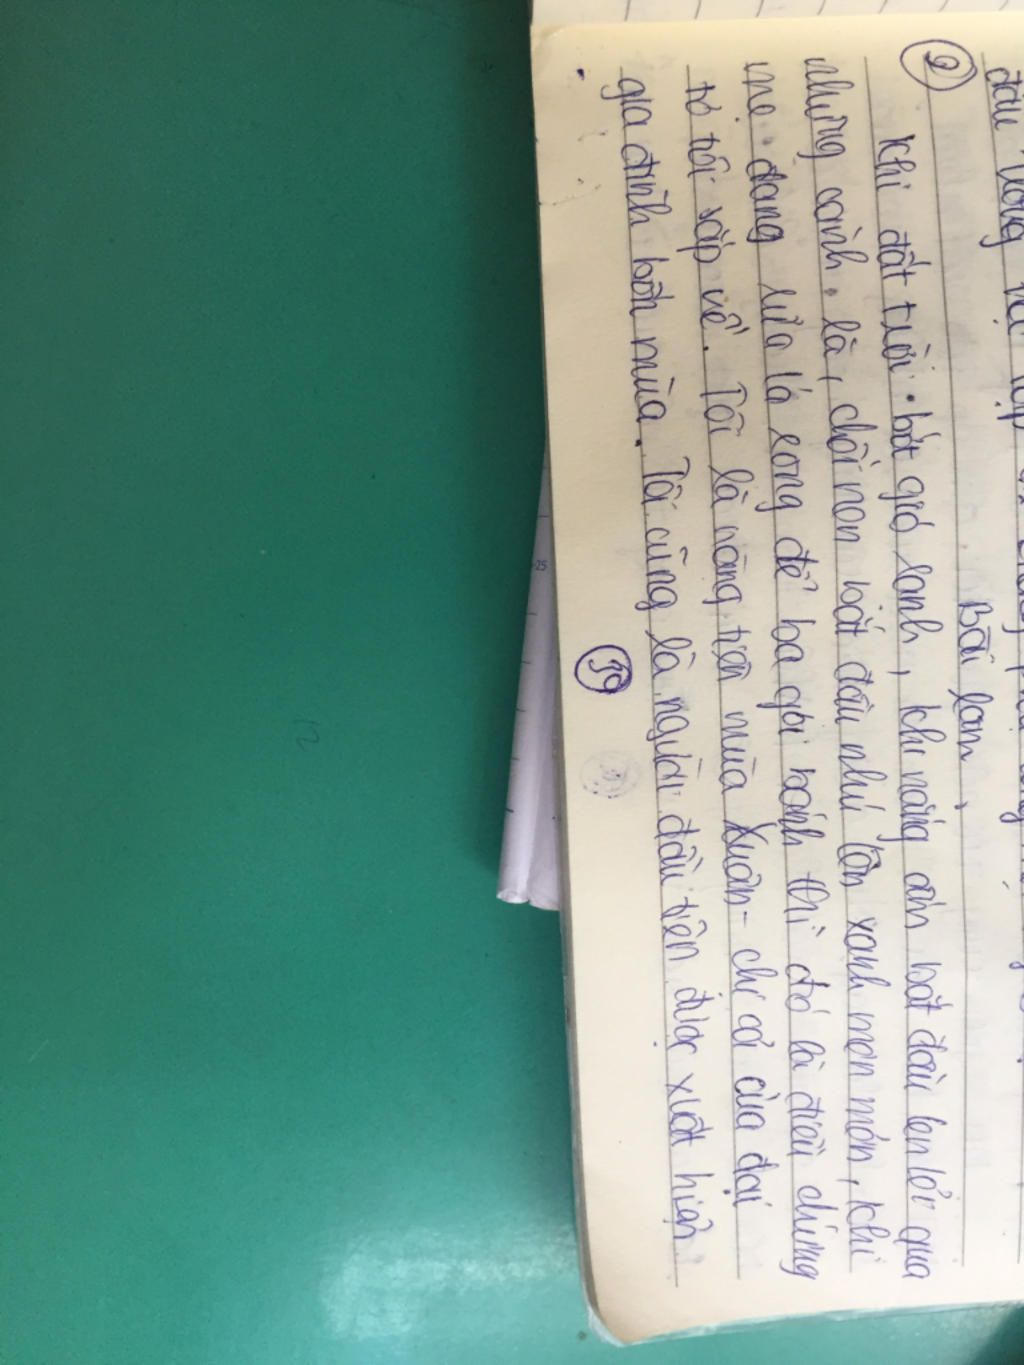 đầu
②
Bài làm.
Khi đất trời bớt gió lạnh, khi nắng ấm bắt đầu len lỏi qua
những cành, lá, chồi non bắt đầu nhú lên xanh mơn mởn, khi
mẹ đang rửa lá song để ba gói bánh thì đó là điều chứng
tỏ tôi sắp về. Tôi là nàng tiên mùa Xuân - chị cả của đại
gia đình bốn mùa. Tôi cũng là người đầu tiên được xuất hiện
25